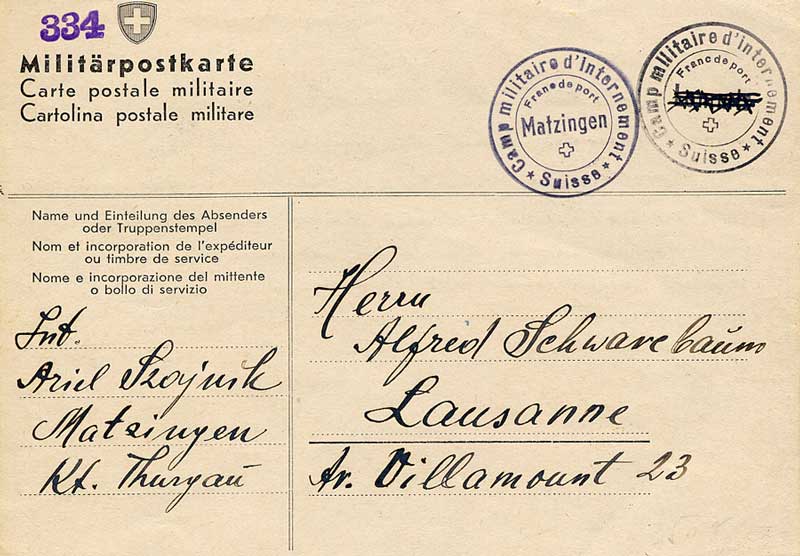 334
Militärpostkarte
Carte postale militaire
Cartolina postale militare
Camp militaire d'internement
Franc de port
Matzingen
★ Suisse ★
Camp militaire d'internement
Franc de port
★ Suisse ★
Name und Einteilung des Absenders
oder Truppenstempel
Nom et incorporation de l'expéditeur
ou timbre de service
Nome e incorporazione del mittente
o bollo di servizio
Int.
Ariel Szajnik
Matzingen
Kt. Thurgau
Herrn
Alfred Schwarzbaum
Lausanne
Av. Villamount 23